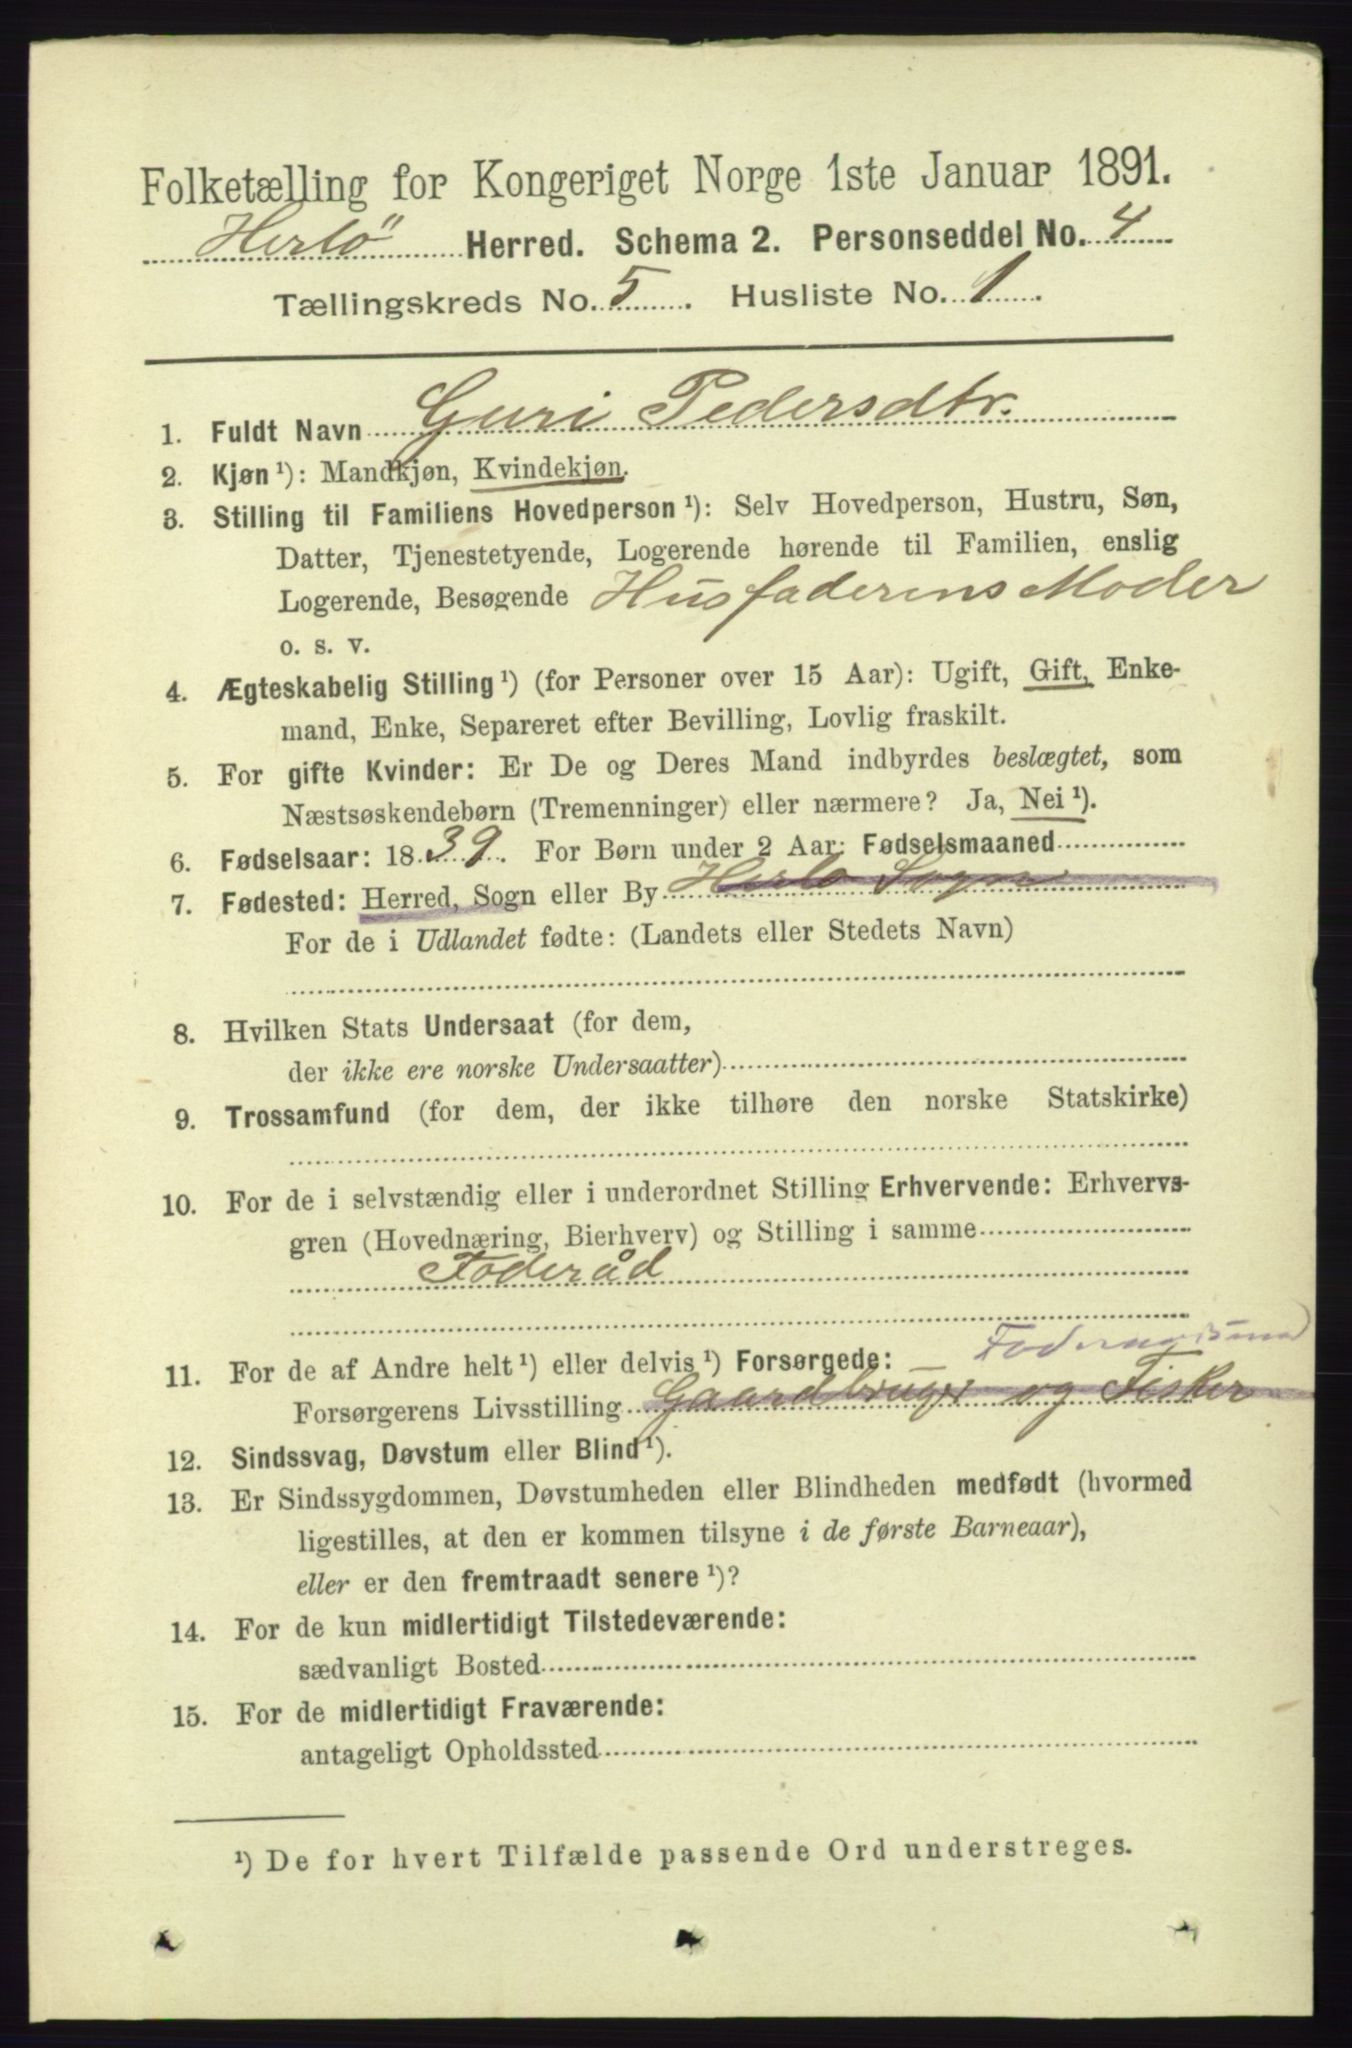 Folketælling for Kongeriget Norge 1ste Januar 1891.
Herlö Herred. Schema 2. Personseddel No. 4
Tællingskreds No. 5. Husliste No. 1.
1. Fuldt Navn Guri Pedersdtr.
2. Kjøn ¹): Mandkjøn, Kvindekjøn.
3. Stilling til Familiens Hovedperson ¹): Selv Hovedperson, Hustru, Søn,
Datter, Tjenestetyende, Logerende hørende til Familien, enslig
Logerende, Besøgende Husfaderens Moder
o. s. v.
4. Ægteskabelig Stilling ¹) (for Personer over 15 Aar): Ugift, Gift, Enke-
mand, Enke, Separeret efter Bevilling, Lovlig fraskilt.
5. For gifte Kvinder: Er De og Deres Mand indbyrdes beslægtet, som
Næstsøskendebørn (Tremenninger) eller nærmere? Ja, Nei ¹).
6. Fødselsaar: 1839. For Børn under 2 Aar: Fødselsmaaned
7. Fødested: Herred, Sogn eller By Herlø Sogn
For de i Udlandet fødte: (Landets eller Stedets Navn)
8. Hvilken Stats Undersaat (for dem,
der ikke ere norske Undersaatter)
9. Trossamfund (for dem, der ikke tilhøre den norske Statskirke)
10. For de i selvstændig eller i underordnet Stilling Erhvervende: Erhvervs-
gren (Hovednæring, Bierhverv) og Stilling i samme
Foderåd
11. For de af Andre helt ¹) eller delvis ¹) Forsørgede:
Forsørgerens Livsstilling Gaardbruger og Fisker
12. Sindssvag, Døvstum eller Blind ¹).
13. Er Sindssygdommen, Døvstumheden eller Blindheden medfødt (hvormed
ligestilles, at den er kommen tilsyne i de første Barneaar),
eller er den fremtraadt senere ¹)?
14. For de kun midlertidigt Tilstedeværende:
sædvanligt Bosted
15. For de midlertidigt Fraværende:
antageligt Opholdssted
¹) De for hvert Tilfælde passende Ord understreges.